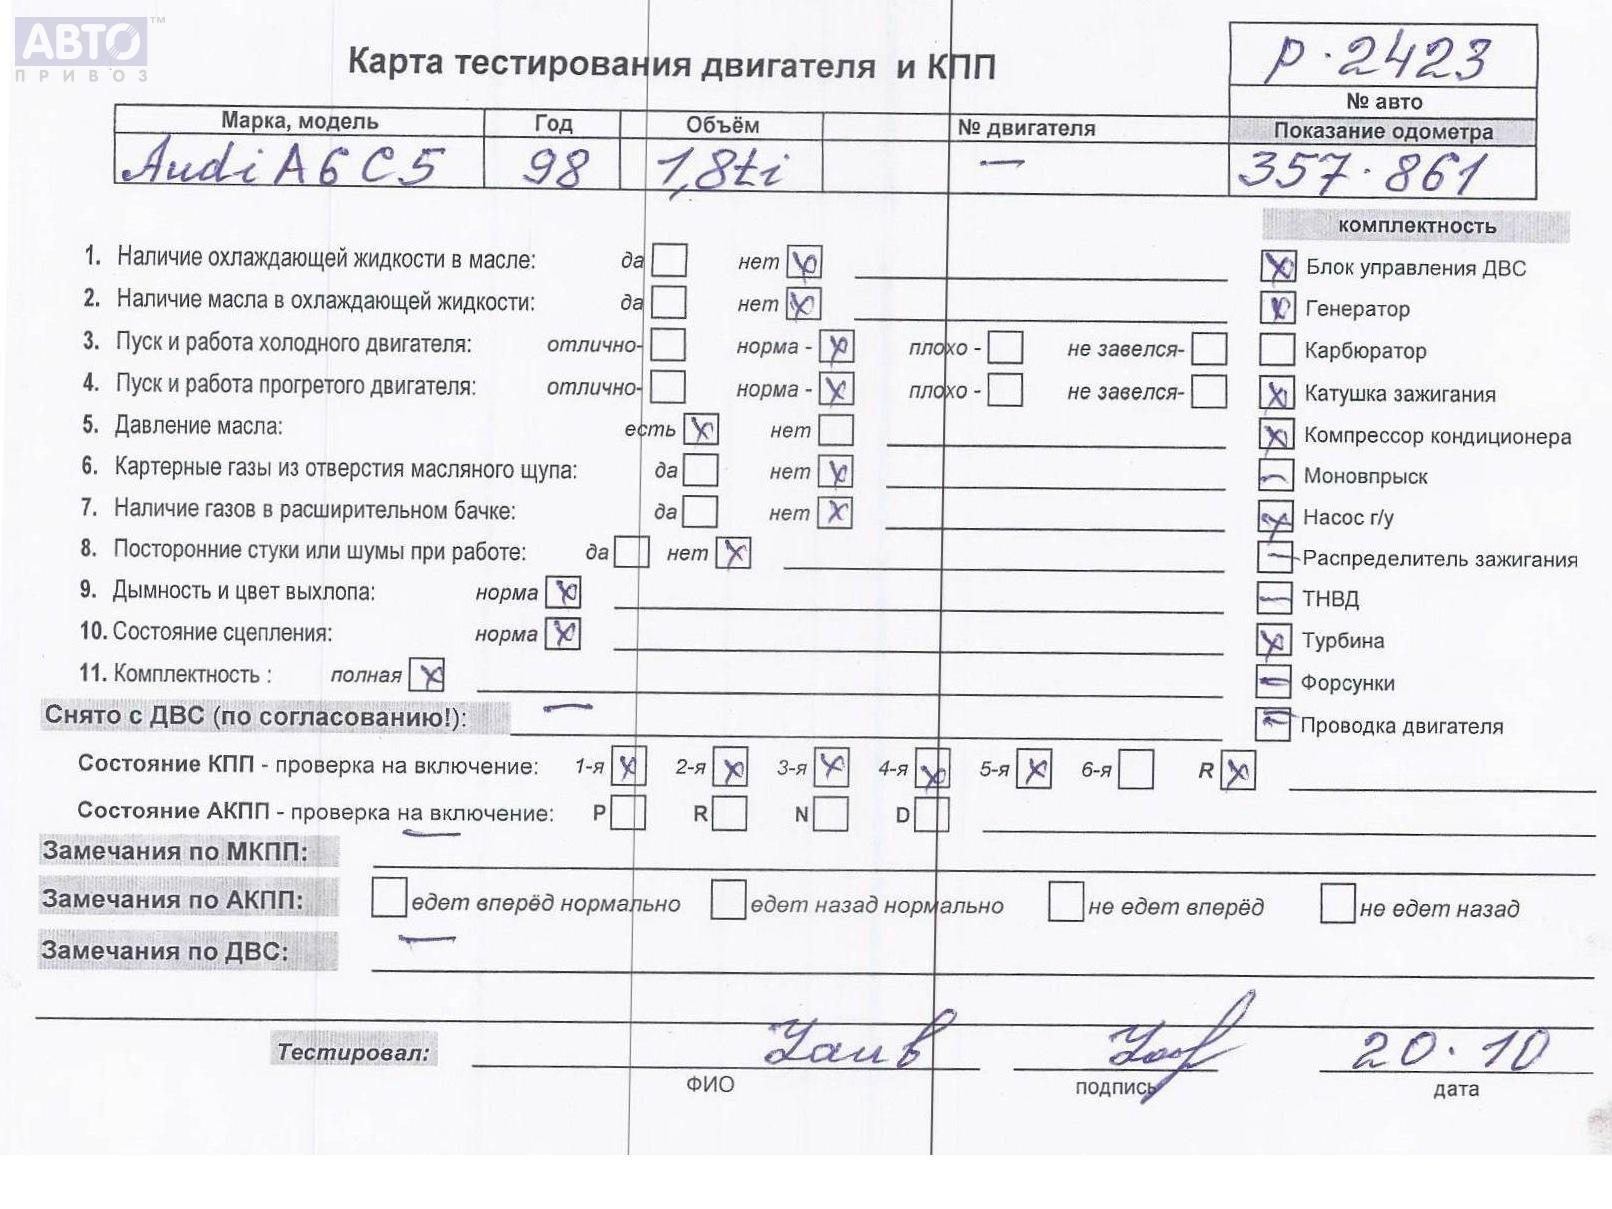 АВТО™
ПРИВОЗ
Карта тестирования двигателя и КПП
р.2423
№ авто
Марка, модель Год Объём № двигателя Показание одометра
Audi A6 C5 98 1,8ti — 357.861
комплектность
1. Наличие охлаждающей жидкости в масле: да нет x
Блок управления ДВС
2. Наличие масла в охлаждающей жидкости: да нет x
Генератор
3. Пуск и работа холодного двигателя: отлично- норма - x плохо - не завелся-
Карбюратор
4. Пуск и работа прогретого двигателя: отлично- норма - x плохо - не завелся-
Катушка зажигания
5. Давление масла: есть x нет
Компрессор кондиционера
6. Картерные газы из отверстия масляного щупа: да нет x
Моновпрыск
7. Наличие газов в расширительном бачке: да нет x
Насос г/у
8. Посторонние стуки или шумы при работе: да нет x
Распределитель зажигания
9. Дымность и цвет выхлопа: норма x
ТНВД
10. Состояние сцепления: норма x
Турбина
11. Комплектность : полная x
Форсунки
Снято с ДВС (по согласованию!): —
Проводка двигателя
Состояние КПП - проверка на включение: 1-я x 2-я x 3-я x 4-я x 5-я x 6-я R x
Состояние АКПП - проверка на включение: P R N D
Замечания по МКПП: —
Замечания по АКПП: едет вперёд нормально едет назад нормально не едет вперёд не едет назад
Замечания по ДВС: —
Тестировал: 20.10
ФИО подпись дата